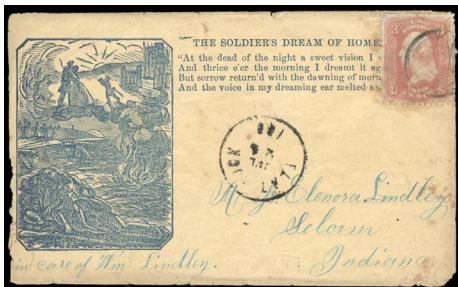 THE SOLDIER'S DREAM OF HOME
"At the dead of the night a sweet vision I
And thrice e'er the morning I dreamt it ag
But sorrow return'd with the dawning of morn
And the voice in my dreaming ear melted a
3
3
JUL
24
Elenora Lindley
Selam
Indiana
in care of Wm Lindley.